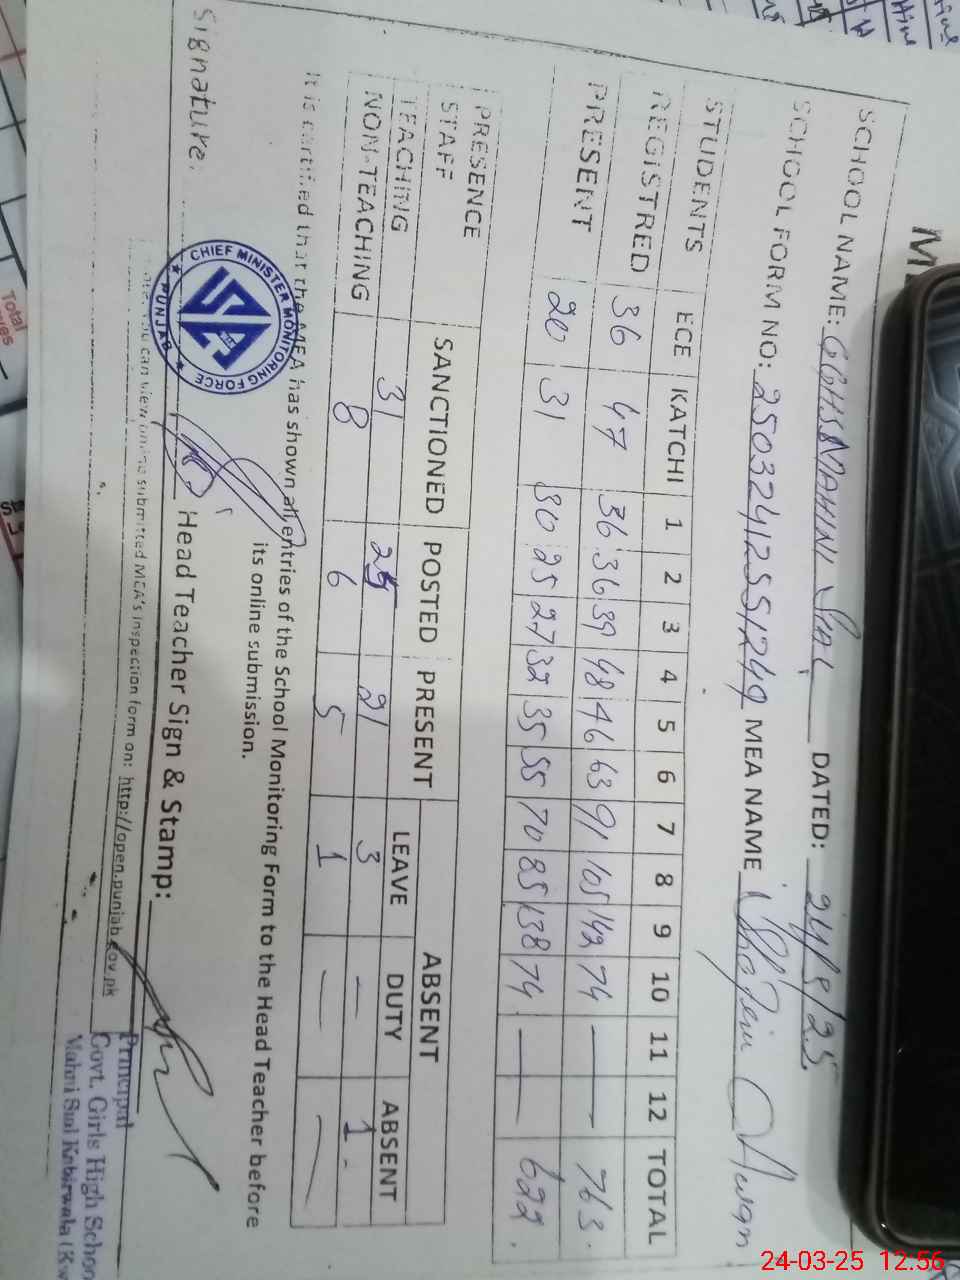 SCHOOL NAME: GGHS MAHNI Sial DATED: 24/3/25
SCHOOL FORM NO: 25032412551249 MEA NAME Awan
STUDENTS ECE KATCHI 1 2 3 4 5 6 7 8 9 10 11 12 TOTAL
REGISTRED 36 47 36 36 39 48 46 63 91 105 142 74 — — 763
PRESENT 20 31 30 25 27 32 35 55 70 85 138 74 — — 622
PRESENCE
STAFF SANCTIONED POSTED PRESENT ABSENT
LEAVE DUTY ABSENT
TEACHING 31 25 21 3 — 1
NON-TEACHING 8 6 5 1 — —
It is certified that the MEA has shown all entries of the School Monitoring Form to the Head Teacher before
its online submission.
CHIEF MINISTER MONITORING FORCE
PUNJAB
Signature: Head Teacher Sign & Stamp:
you can view online submitted MEA's inspection form on: http://open.punjab.gov.pk
Principal
Govt. Girls High School
Mahni Sial Kabirwala (Kw
Total
24-03-25 12.56